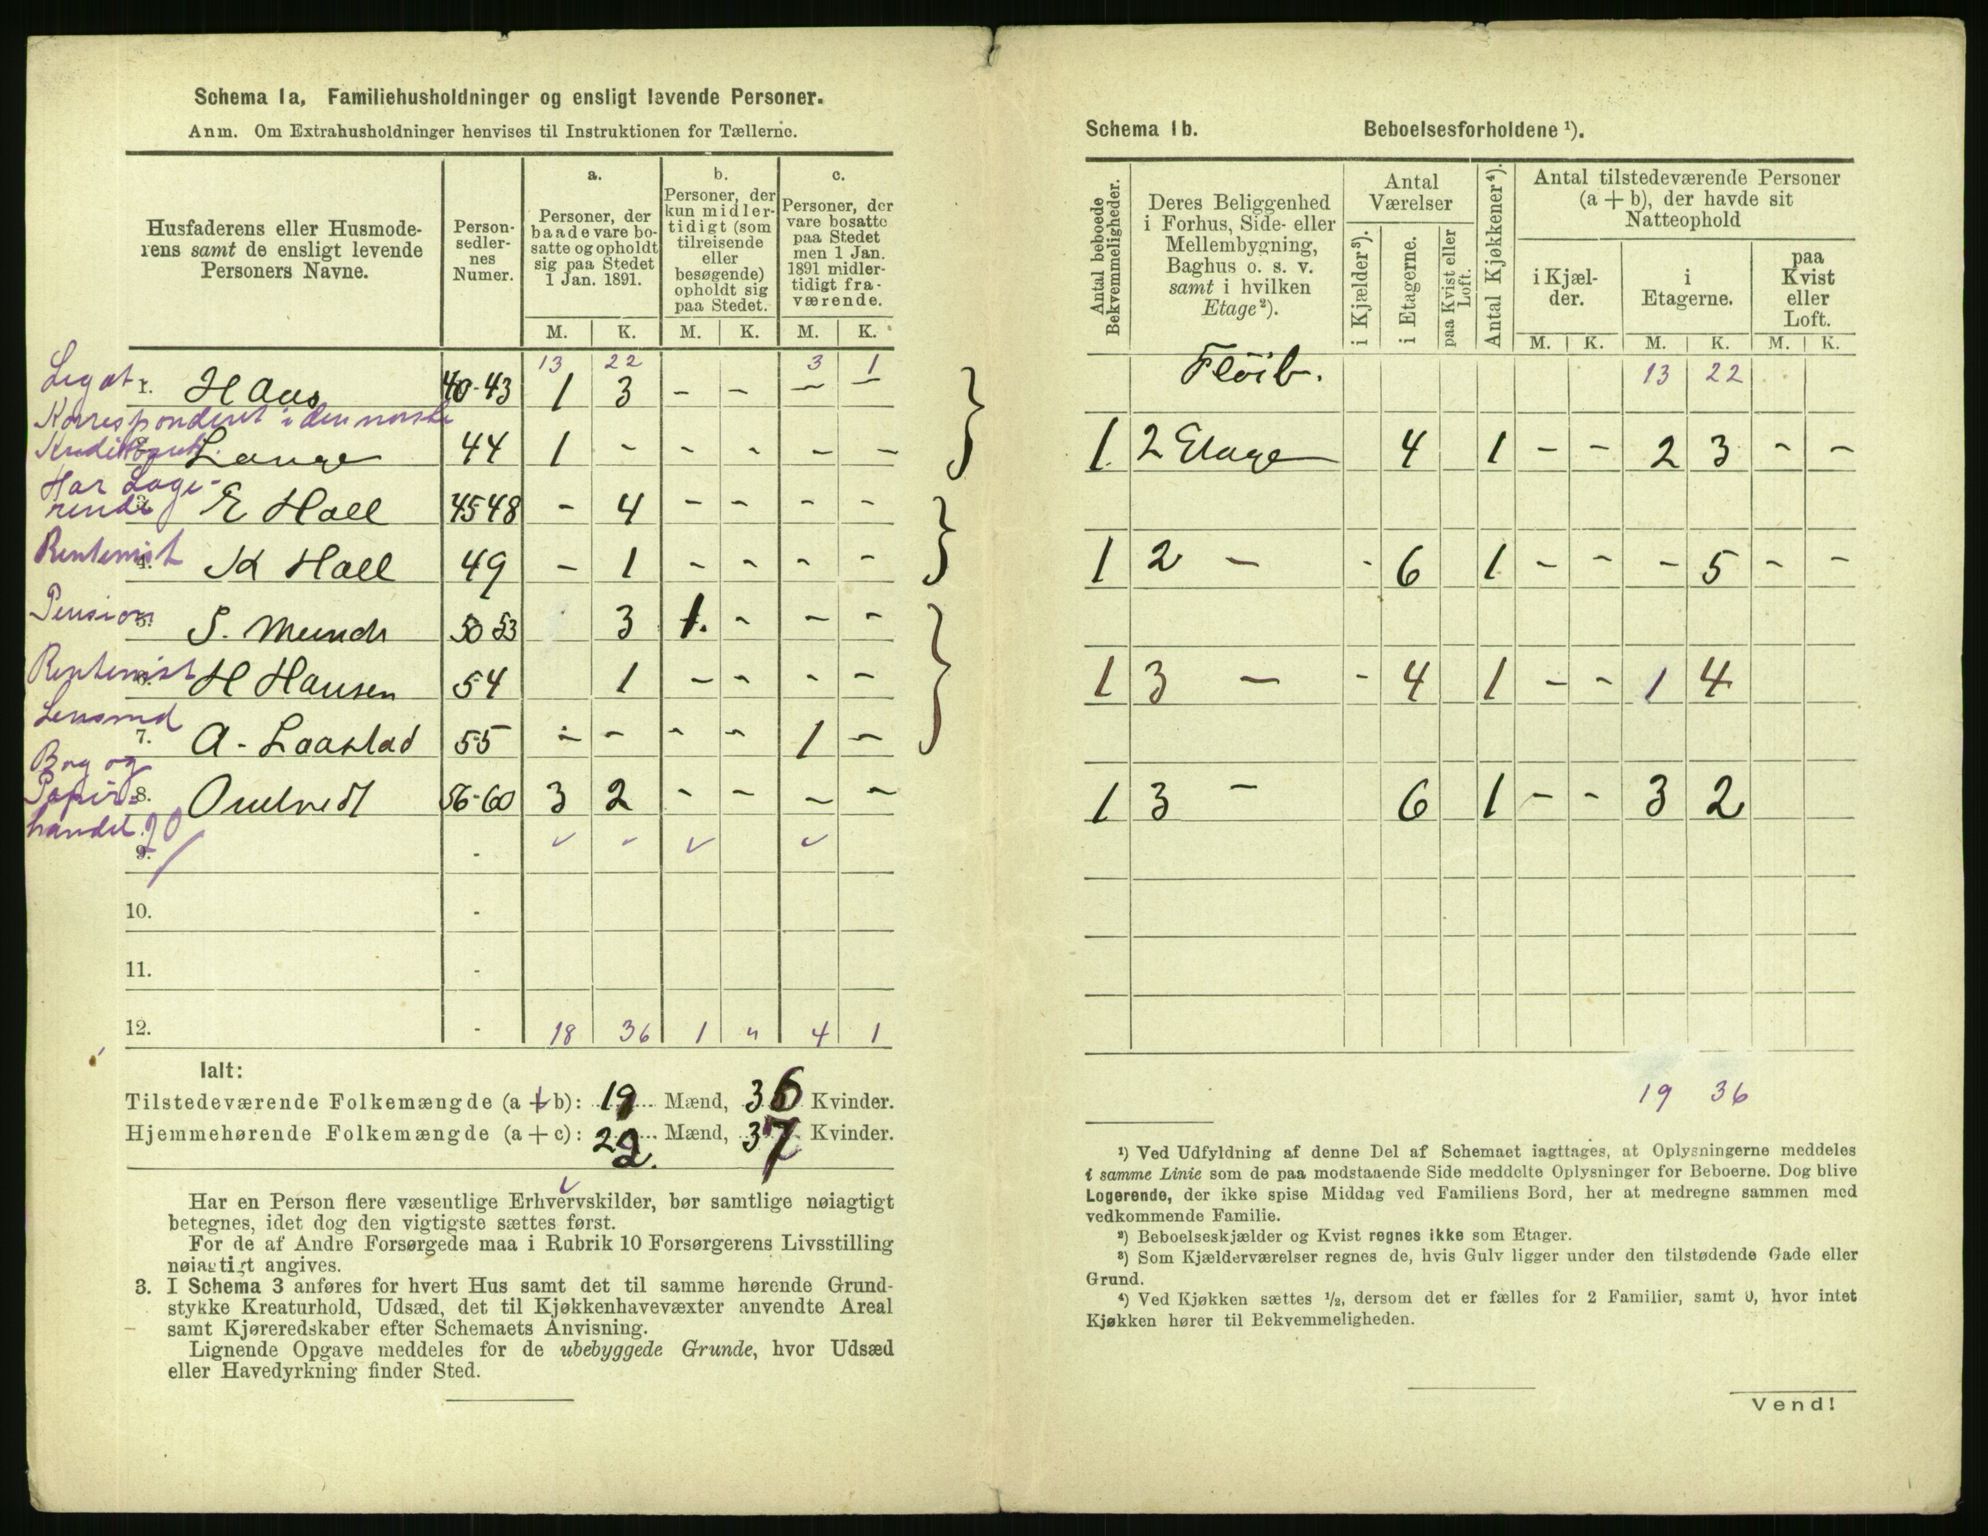 Schema 1a, Familiehusholdninger og ensligt levende Personer.
Anm. Om Extrahusholdninger henvises til Instruktionen for Tællerne.
Husfaderens eller Husmoderens samt de ensligt levende Personers Navne.
Personsedlernes Numer.
a.
Personer, der baade vare bosatte og opholdt sig paa Stedet 1 Jan. 1891.
b.
Personer, der kun midlertidigt (som tilreisende eller besøgende) opholdt sig paa Stedet.
c.
Personer, der vare bosatte paa Stedet men 1 Jan. 1891 midlertidigt fraværende.
M. K. M. K. M. K.
13 22 3 1
Legat 1. H Aas 40-43 1 3 - - - -
Korrespondent i den norske
Kreditbank. Lange 44 1 - - - - -
Har Loge-
rende E Hall 45 48 - 4 - - - -
Rentenist 4. K Hall 49 - 1 - - - -
Pension 5. S. Munch 50 53 3 1. - - -
Rentenist 6. H Hansen 54 1 - - - -
Lensmd
7. A. Laastad 55 - - - - 1 -
Bog og
Papir- 8. Omtvedt 56-60 3 2 - - - -
handel.
9. -
10. -
11. -
12. - 18 36 1 " 4 1
Ialt:
Tilstedeværende Folkemængde (a + b): 19 Mænd, 36 Kvinder.
Hjemmehørende Folkemængde (a + c): 22. Mænd, 37 Kvinder.
Har en Person flere væsentlige Erhvervskilder, bør samtlige nøiagtigt
betegnes, idet dog den vigtigste sættes først.
For de af Andre Forsørgede maa i Rubrik 10 Forsørgerens Livsstilling
nøiagtigt angives.
3. I Schema 3 anføres for hvert Hus samt det til samme hørende Grund-
stykke Kreaturhold, Udsæd, det til Kjøkkenhavevæxter anvendte Areal
samt Kjøreredskaber efter Schemaets Anvisning.
Lignende Opgave meddeles for de ubebyggede Grunde, hvor Udsæd
eller Havedyrkning finder Sted.
Schema 1b. Beboelsesforholdene ¹).
Antal beboede Bekvemmeligheder.
Deres Beliggenhed i Forhus, Side- eller Mellembygning, Baghus o. s. v. samt i hvilken Etage ²).
Antal Værelser
i Kjælder ³).
i Etagerne.
paa Kvist eller Loft.
Antal Kjøkkener ⁴).
Antal tilstedeværende Personer (a + b), der havde sit Natteophold
i Kjælder.
i Etagerne.
paa Kvist eller Loft.
M. K. M. K. M. K.
Fløib. 13 22
1 2 Etage 4 1 - - 2 3 - -
1 2 - - 6 1 - - - 5 - -
1 3 - - 4 1 - - 1 4
1 3 - 6 1 - - 3 2
19 36
¹) Ved Udfyldning af denne Del af Schemaet iagttages, at Oplysningerne meddeles
i samme Linie som de paa modstaaende Side meddelte Oplysninger for Beboerne. Dog blive
Logerende, der ikke spise Middag ved Familiens Bord, her at medregne sammen med
vedkommende Familie.
²) Beboelseskjælder og Kvist regnes ikke som Etager.
³) Som Kjælderværelser regnes de, hvis Gulv ligger under den tilstødende Gade eller
Grund.
⁴) Ved Kjøkken sættes ½, dersom det er fælles for 2 Familier, samt 0, hvor intet
Kjøkken hører til Bekvemmeligheden.
Vend!